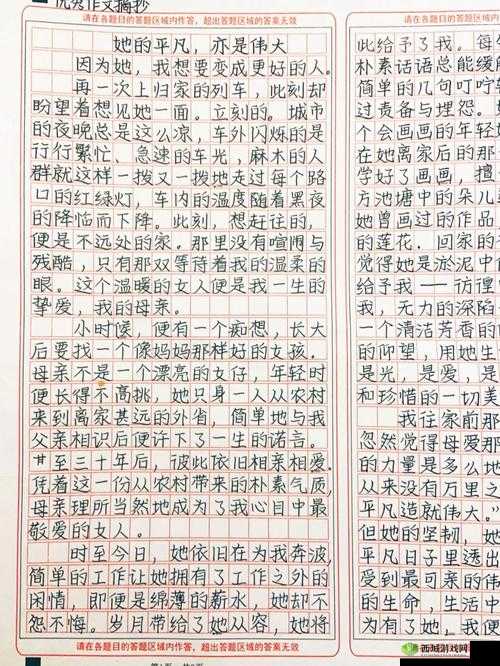 优秀作文摘抄
请在各题目的答题区域内作答，超出答题区域的答案无效
她的平凡，亦是伟大
因为她，我想要变成更好的人。
再一次上归家的列车，此刻却
盼望着想见她一面。立刻的。城市
的夜晚总是这么凉，车外闪烁的是
行行繁忙、急速的车光，麻木的人
群就这样一拨又一拨地走过每个路
口的红绿灯，车内的温度随着黑夜
的降临而下降。此刻，想赶往的，
便是不远处的家。那里没有喧闹与
残酷，只有那双等待着我的温柔的
眼。这个温暖的女人便是我一生的
挚爱，我的母亲。
小时候，便有一个痴想，长大
后要找一个像妈妈那样好的女孩。
母亲不是一个漂亮的女仔，年轻时
便长得不高挑，她只身一人从农村
来到离家甚远的外省，简单地与我
父亲相识后便许下了一生的诺言。
甘至三十年后，彼此依旧相亲相爱。
凭着这一份从农村带来的朴素气质，
母亲理所当然地成为了我心目中最
敬爱的女人。
时至今日，她依旧在为我奔波，
简单的工作让她拥有了工作之外的
闲情，即便是绵薄的薪水，她却不
怨不悔。岁月带给了她从容，她将
请在各题目区域内作答，超出答题区域的答案无效
请在各题目的答题区域内作答，超出答题区域的答案无效
此给予了我。每
朴素话语总能缓解
简单的几句叮咛轻
过责备与埋怨。
个会画画的年轻
在她离家后的那
学好了画画，擅
方池塘中的朵儿
她曾画过的作品
的莲花。回家的
觉得她是淤泥中
给予我——彷徨
我，无力的深陷
一个清洁芳香的
的仰望，用她生
是光，是爱，是
和珍惜的一切美
我往家前那
忽然觉得母爱那
的力量是多么地
从来没有万里之
平凡造就伟大。”
但她的坚韧，她
平凡日子里透出
受到最可亲的伟
的生命，生活中
为有了她，我便
请在各题目的答题区域内作答，
西域游戏网